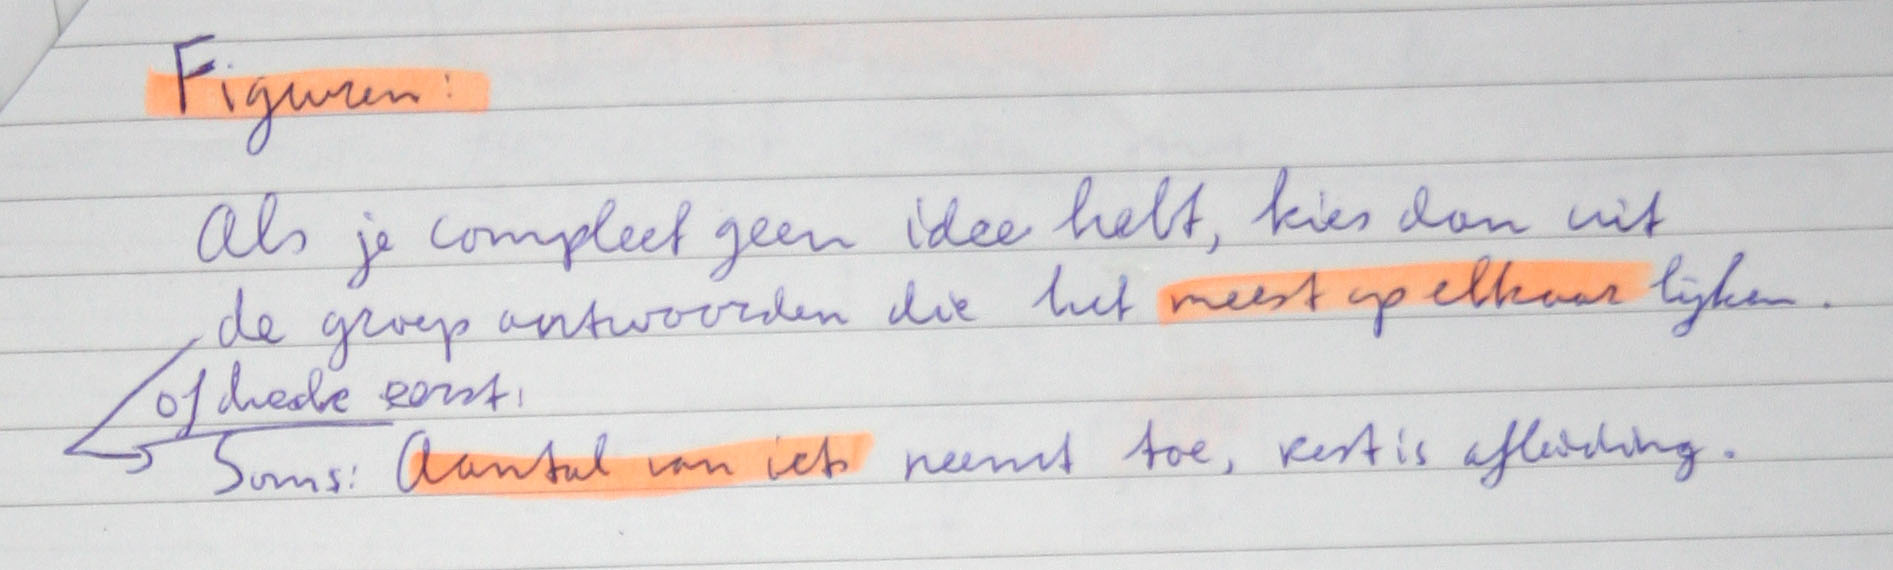 Figuren:
Als je compleet geen idee hebt, kies dan uit
de groep antwoorden die het meest op elkaar lijken.
of eerst:
Soms: Aantal van iets neemt toe, rest is afleiding.